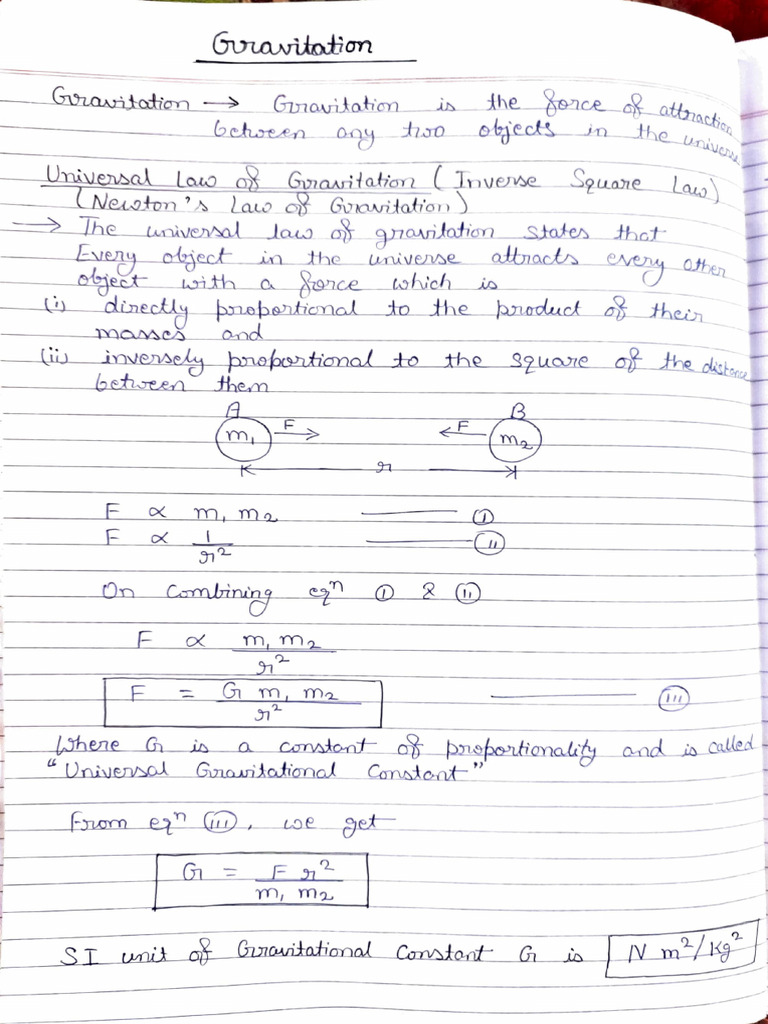 Gravitation
Gravitation → Gravitation is the force of attraction
between any two objects in the universe
Universal Law of Gravitation (Inverse Square Law)
(Newton's Law of Gravitation)
→ The universal law of gravitation states that
Every object in the universe attracts every other
object with a force which is
(i) directly proportional to the product of their
masses and
(ii) inversely proportional to the square of the distance
between them
A B
m₁ F → ← F m₂
r
F ∝ m₁ m₂ ——— (i)
F ∝ 1/r² ——— (ii)
On Combining eqⁿ (i) & (ii)
F ∝ m₁ m₂ / r²
F = G m₁ m₂ / r² ——— (iii)
Where G is a constant of proportionality and is called
"Universal Gravitational Constant"
From eqⁿ (iii), we get
G = F r² / m₁ m₂
SI unit of Gravitational Constant G is N m²/Kg²